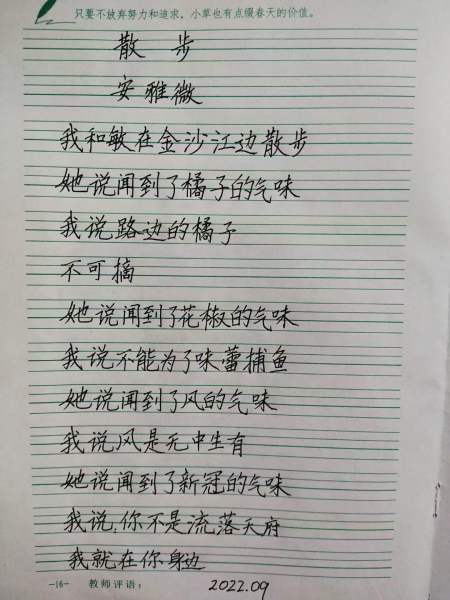 只要不放弃努力和追求，小草也有点缀春天的价值。
散 步
安雅微
我和敏在金沙江边散步
她说闻到了橘子的气味
我说路边的橘子
不可摘
她说闻到了花椒的气味
我说不能为了味蕾捕鱼
她说闻到了风的气味
我说风是无中生有
她说闻到了新冠的气味
我说，你不是流落天府
我就在你身边
-16- 教师评语： 2022.09